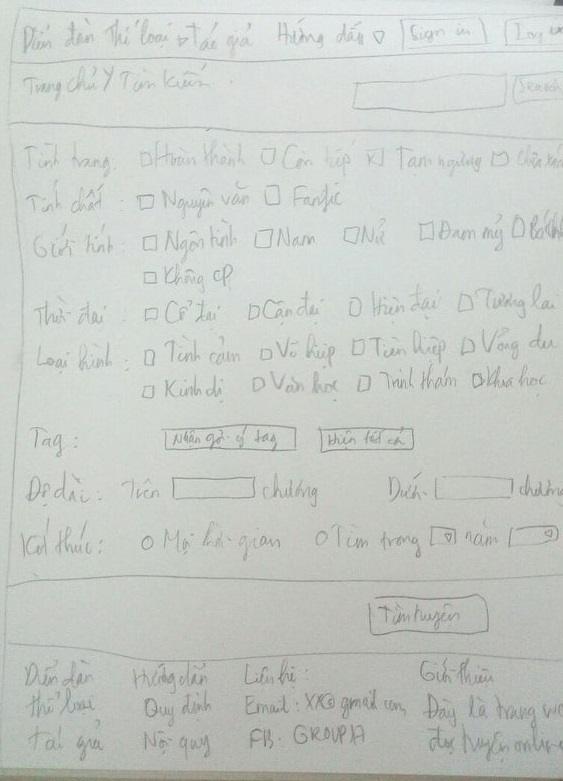 Diễn đàn Thể loại Tác giả Hướng dẫn Sign in Log
Trang chủ / Tìm kiếm
Search
Tình trạng: Hoàn thành Còn tiếp Tạm ngưng
Tính chất: Nguyên văn Fanfic
Giới tính: Ngôn tình Nam Nữ Đam mỹ Bách
Không CP
Thời đại: Cổ đại Cận đại Hiện đại Tương lai
Loại hình: Tình cảm Võ hiệp Tiên hiệp Võng du
Kinh dị Văn học Trinh thám Khoa học
Tag: Nhận gợi ý tag Hiện tất cả
Độ dài: Trên chương Dưới chương
Kết thúc: Mọi thời gian Tìm trong năm
Tìm truyện
Diễn đàn Hướng dẫn Liên hệ: Giới thiệu
thể loại Quy định Email: XX@gmail.com, Đây là trang
tác giả Nội quy FB: GROUP A đọc truyện online